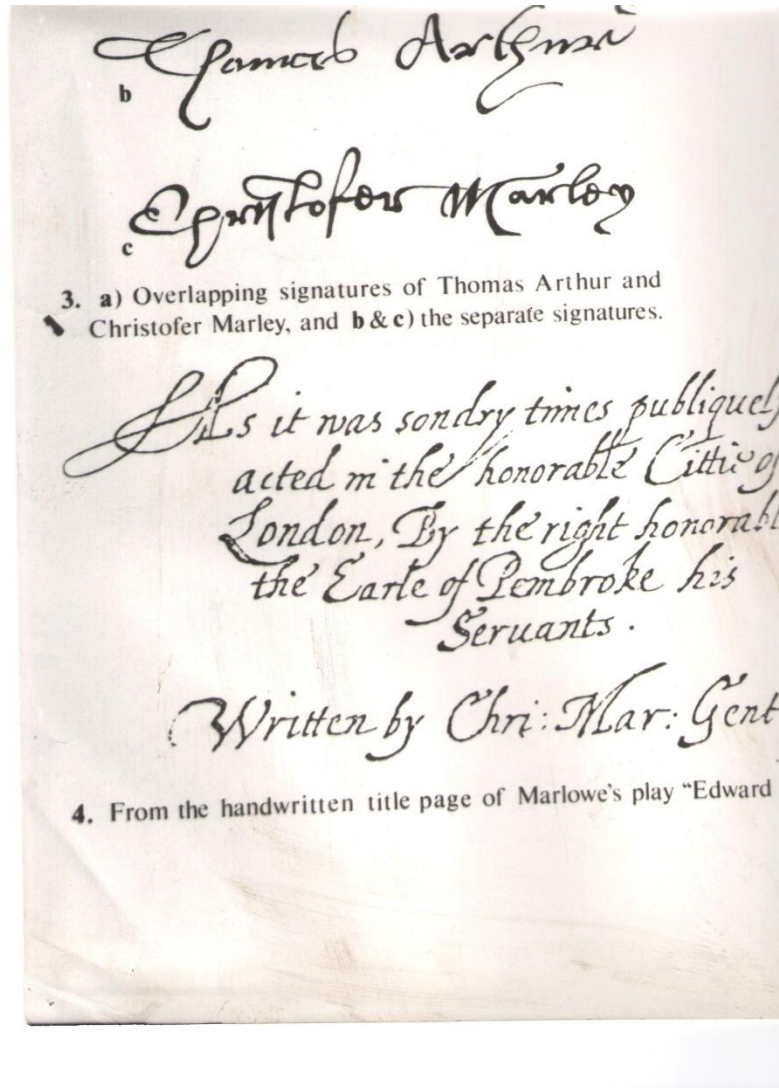 Thomas Arthur
b
Christofer Marley
c
3. a) Overlapping signatures of Thomas Arthur and
Christofer Marley, and b & c) the separate signatures.
As it was sondry times publiquely
acted in the honorable Cittie of
London, By the right honorabl
the Earle of Pembroke his
Seruants .
Written by Chri: Mar: Gent
4. From the handwritten title page of Marlowe's play "Edward